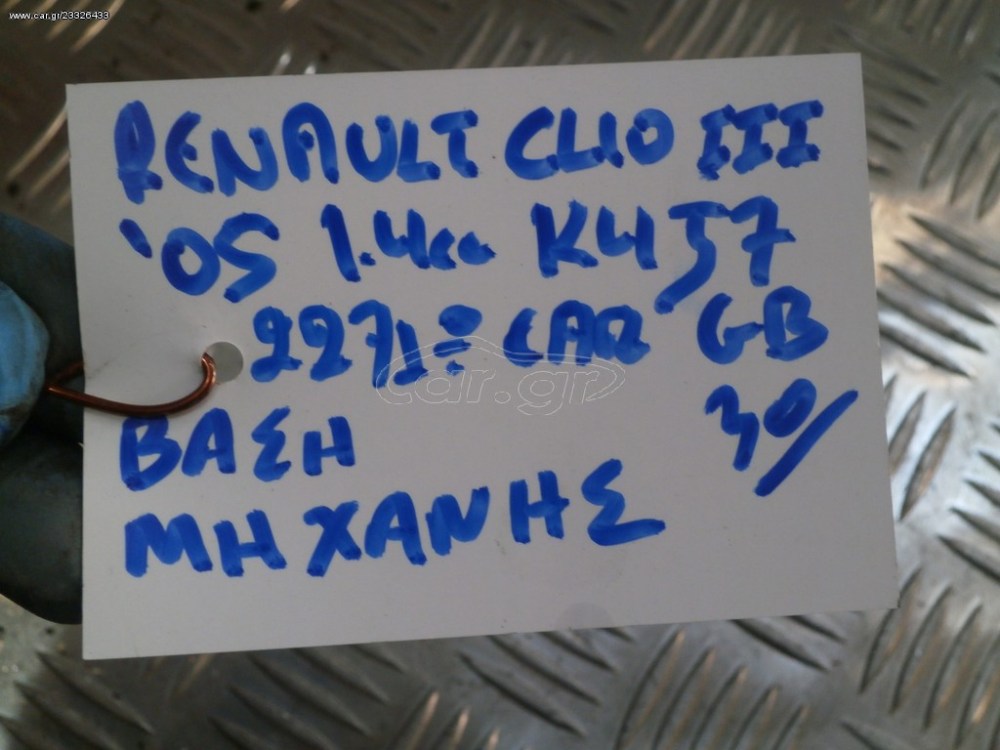 www.car.gr/23326433
RENAULT CLIO III
'05 1.4cc K4J7
2271º CAR GB
car.gr
ΒΑΣΗ 30/
ΜΗΧΑΝΗΣ